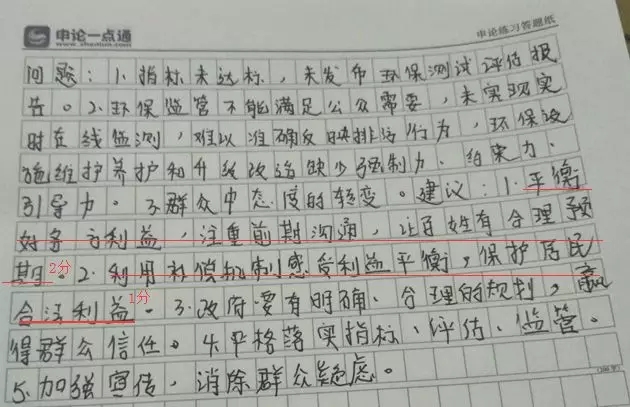 申论一点通
www.shenlun.com
申论练习答题纸
问题：1.指标未达标，未发布环保测试评估报
告。2.环保监管不能满足公众需要，未实现实
时在线监测，难以准确反映排污行为，环保设
施维护养护和升级改造缺少强制力、约束力、
引导力。3.群众中态度的转变。建议：1.平衡
好各方利益，注重前期沟通，让百姓有合理预
期。2分2.利用补偿机制感受利益平衡，保护居民
合法利益1分。3.政府要有明确、合理的规划，赢
得群众信任。4.严格落实指标、评估、监管。
5.加强宣传，消除群众疑虑。